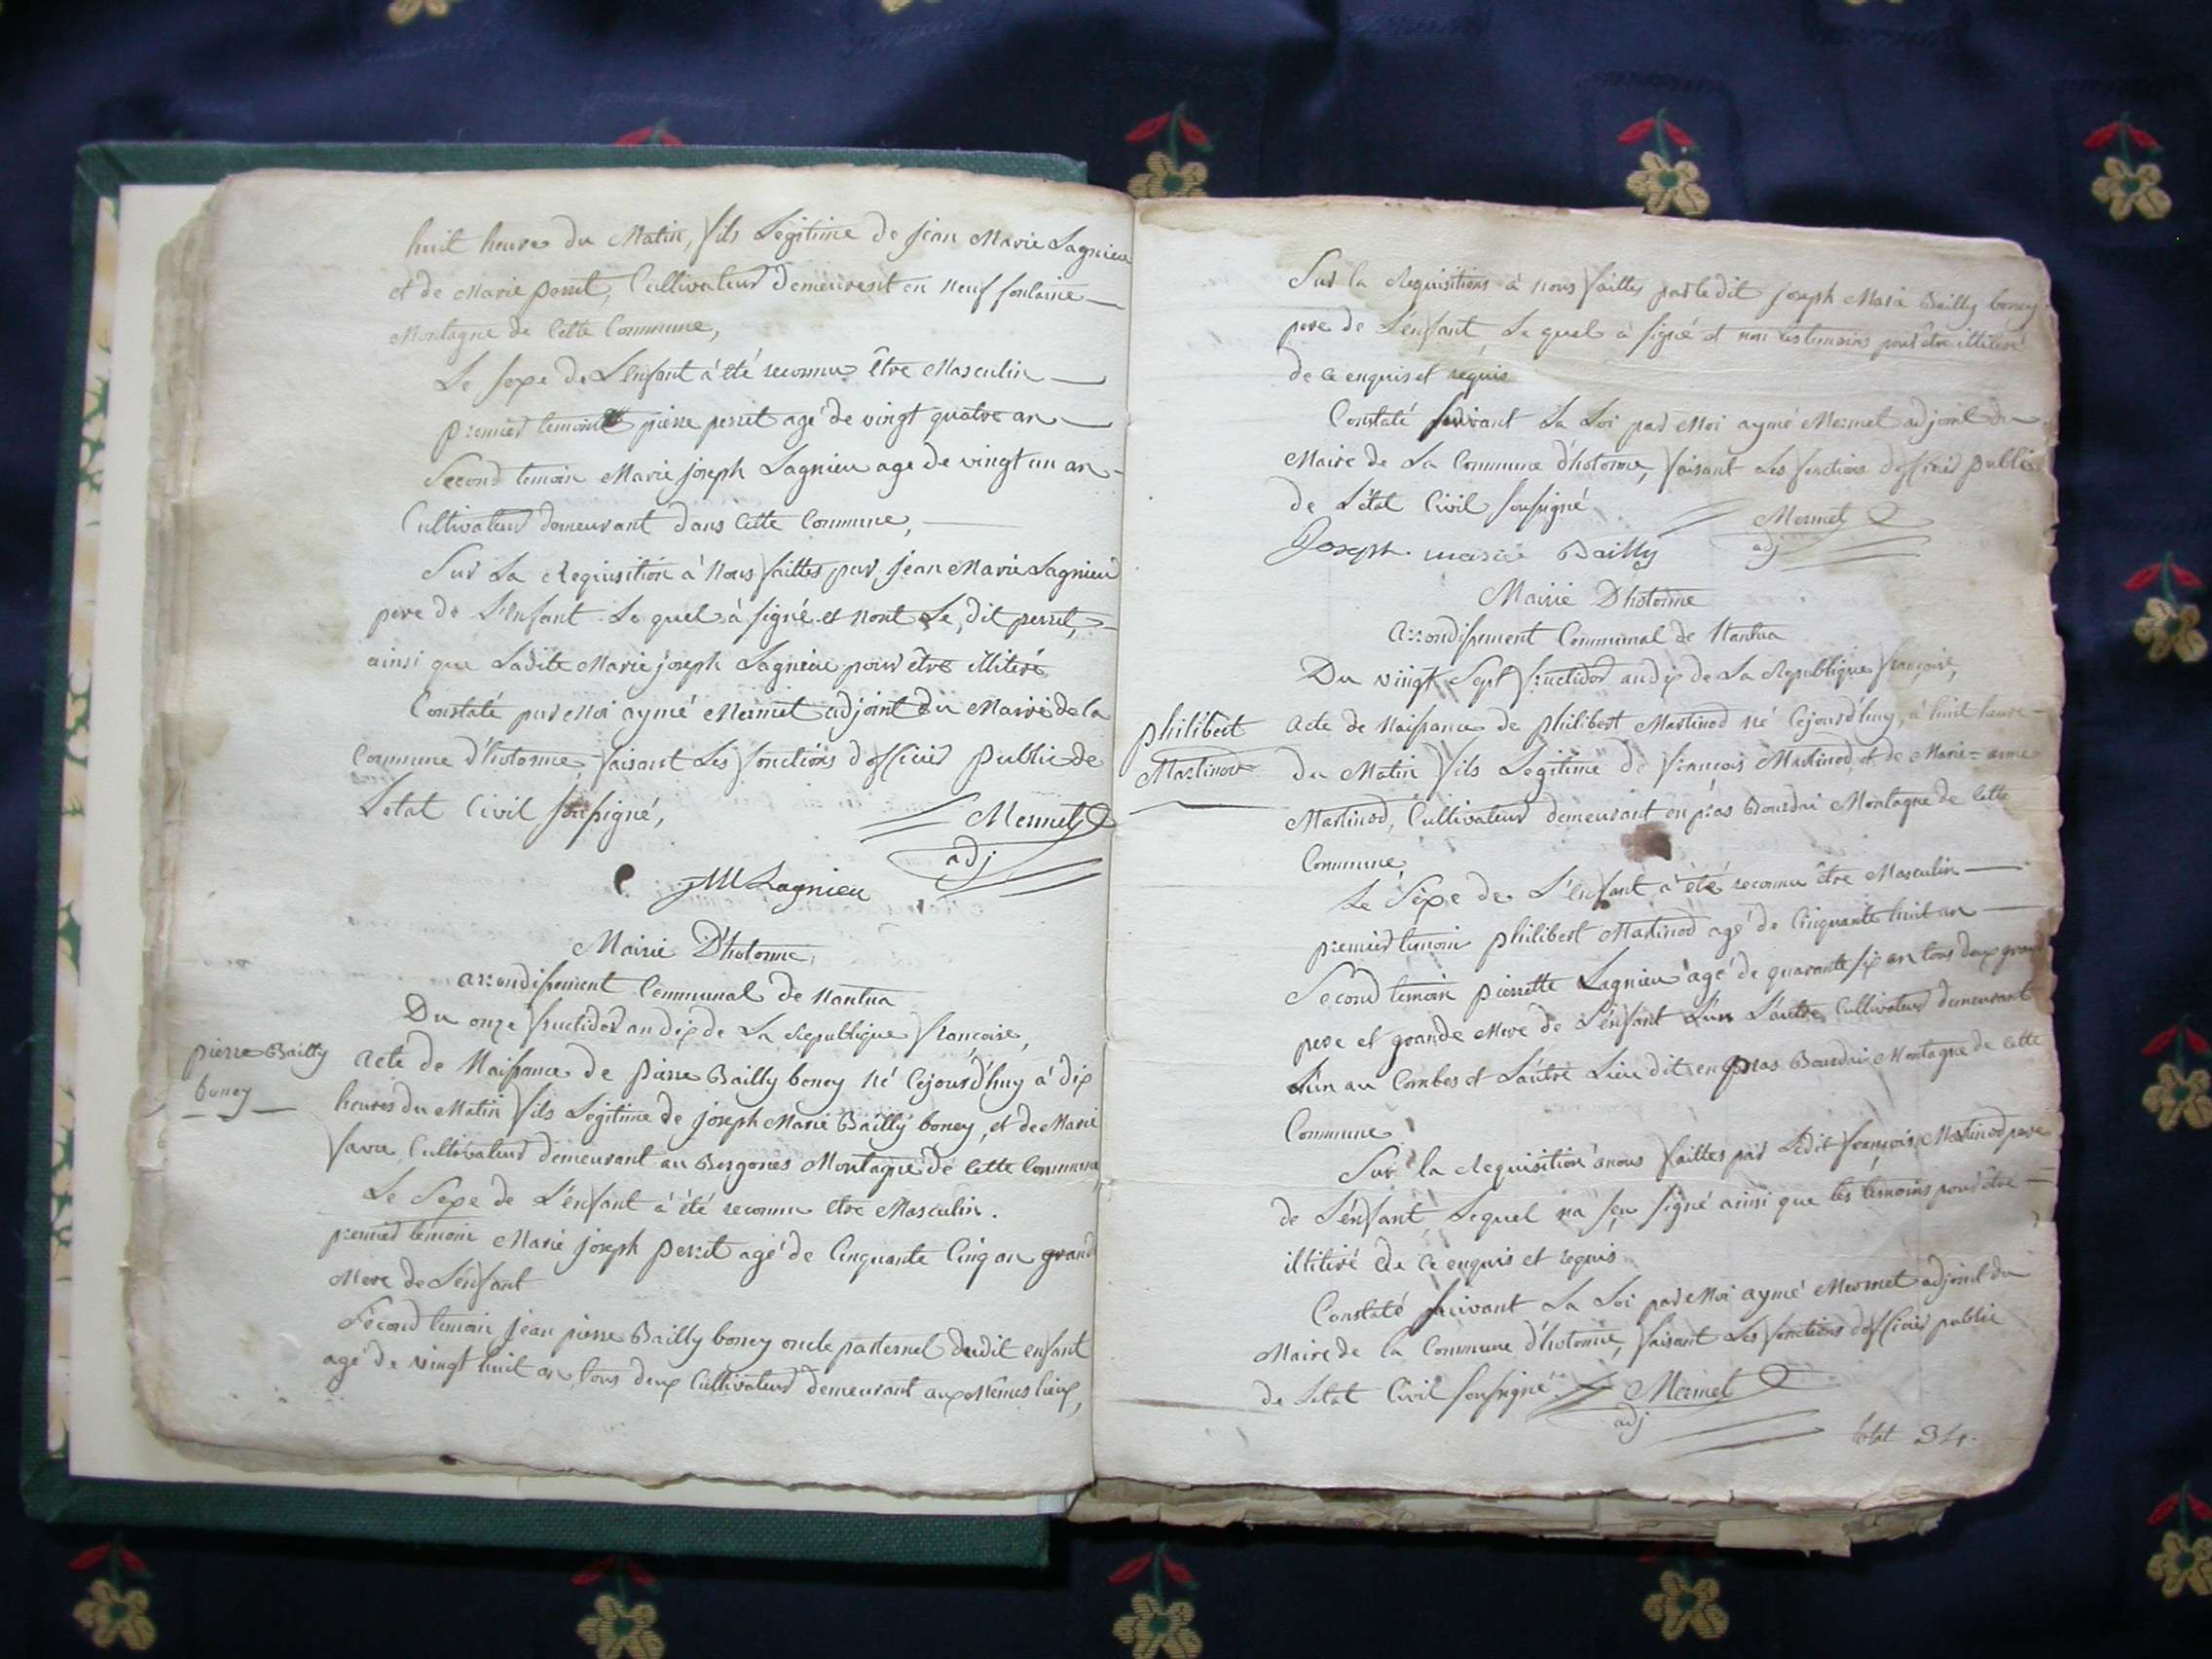 huit heures du Matin, fils Legitime de jean Marie Lagnieu
et de Marie perret, Cultivateur demeurent en neuf fontaine
Montagne de Cette Commune,
Le sexe de L'enfant à été reconnu Être Masculin
premier temoin pierre perret agé de vingt quatre an
Second temoin Marie joseph Lagnieu age de vingt un an
Cultivateur demeurant dans Cette Commune,
Sur La Requisition à Nous faittes par jean Marie Lagnieu
pere de L'enfant Le quel à signé et nont Le dit perret,
ainsi que Ladite Marie joseph Lagnieu pour être illitiré
Constaté par Moi aymé Mermet adjoint du Maire de la
Commune d'hotonne, faisant Les fonctions d'officier public de
L'etat Civil soussigné,
Mermet
adj
JM Lagnieu
Mairie D'hotonne
arrondissement Communal de Nantua
Du onze fructidor an dix de La Republique françoise,
pierre Bailly
boney
acte de Naissance de pierre Bailly boney né Cejourd'huy à dix
heures du Matin fils Legitime de joseph Marie Bailly boney, et de Marie
favre, Cultivateur demeurant au Bergones Montagne de Cette Commune
Le Sexe de L'énfant à été reconnu être Masculin.
premier témoin Marie joseph Perret agé de Cinquante Cinq an grand
Mere de L'énfant
Sécond temoin jean pierre Bailly boney oncle paternel dudit enfant
agé de vingt huit an, tous deux Cultivateur demeurant aux Mêmes lieux,
Sur la Requisitions à nous faittes par le dit joseph Marie Bailly boney
pere de L'énfant, Le quel à signé et non les temoins pour être illitéré
de ce enquis et requis
Constaté suivant La Loi par Moi aymé Mermet adjoint du
Maire de La Commune d'hotonne, faisant Les fonctions d'officier public
de L'état Civil soussigné
Mermet
adj
Joseph. marie Bailly
Mairie D'hotonne
arrondissement Communal de Nantua
Du vingt Sept fructidor an dix de La Republique françoise,
philibert
Martinod
acte de Naissance de philibert Martinod né Cejourd'huy, à huit heure
du Matin fils Legitime de françois Martinod, et de Marie = anne
Martinod, Cultivateur demeurant en pras Bourdai Montagne de Cette
Commune,
Le Séxe de L'énfant à été reconnu être Masculin
premier temoin philibert Martinod agé de Cinquante huit an
Sécond temoin pierrette Lagnieu agé de quarante six an tous deux grand
pere et grande Mere de L'énfant L'un L'autre Cultivateur demeurant
L'un au Combes et L'autre Lieu dit en pras Bourdai Montagne de Cette
Commune
Sur la Requisition anous faittes par Ledit françois Martinod pere
de L'énfant, Lequel na seu signé ainsi que les temoins pour être
illitiré de ce enquis et requis
Constaté suivant La Loi par Moi aymé Mermet adjoint du
Maire de la Commune d'hotonne, faisant Les fonctions d'officier public
de Letat Civil soussigné
Mermet
adj
total 34.